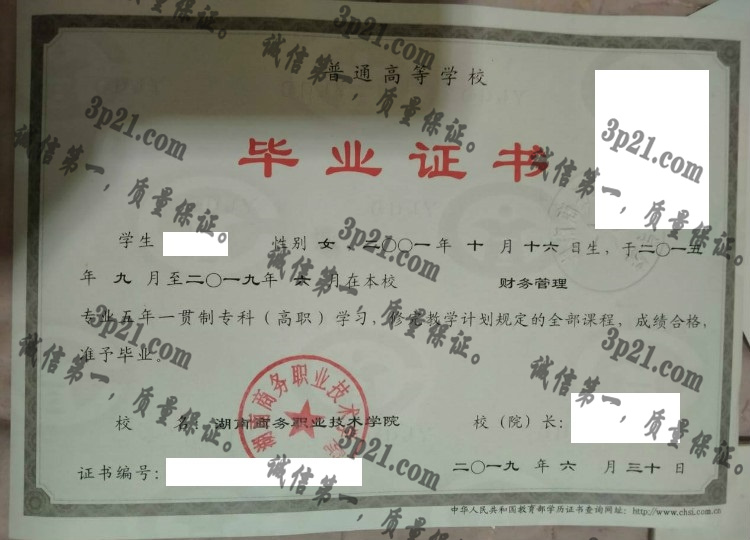 普通高等学校
毕业证书
学生 性别 女，二〇〇一年 十 月 十六 日生，于二〇一五
年 九 月至二〇一九年 六 月在本校 财务管理
专业五年一贯制专科（高职）学习，修完教学计划规定的全部课程，成绩合格，
准予毕业。
校 名：湖南商务职业技术学院 校（院）长：
证书编号： 二〇一九 年 六 月 三十 日
中华人民共和国教育部学历证书查询网址：http://www.chsi.com.cn
湖南商务职业技术学院
3p21.com
诚信第一，质量保证。
3p21.com
诚信第一，质量保证。
3p21.com
诚信第一，质量保证。
3p21.com
诚信第一，质量保证。
3p21.com
诚信第一，质量保证。
3p21.com
诚信第一，质量保证。
3p21.com
诚信第一，质量保证。